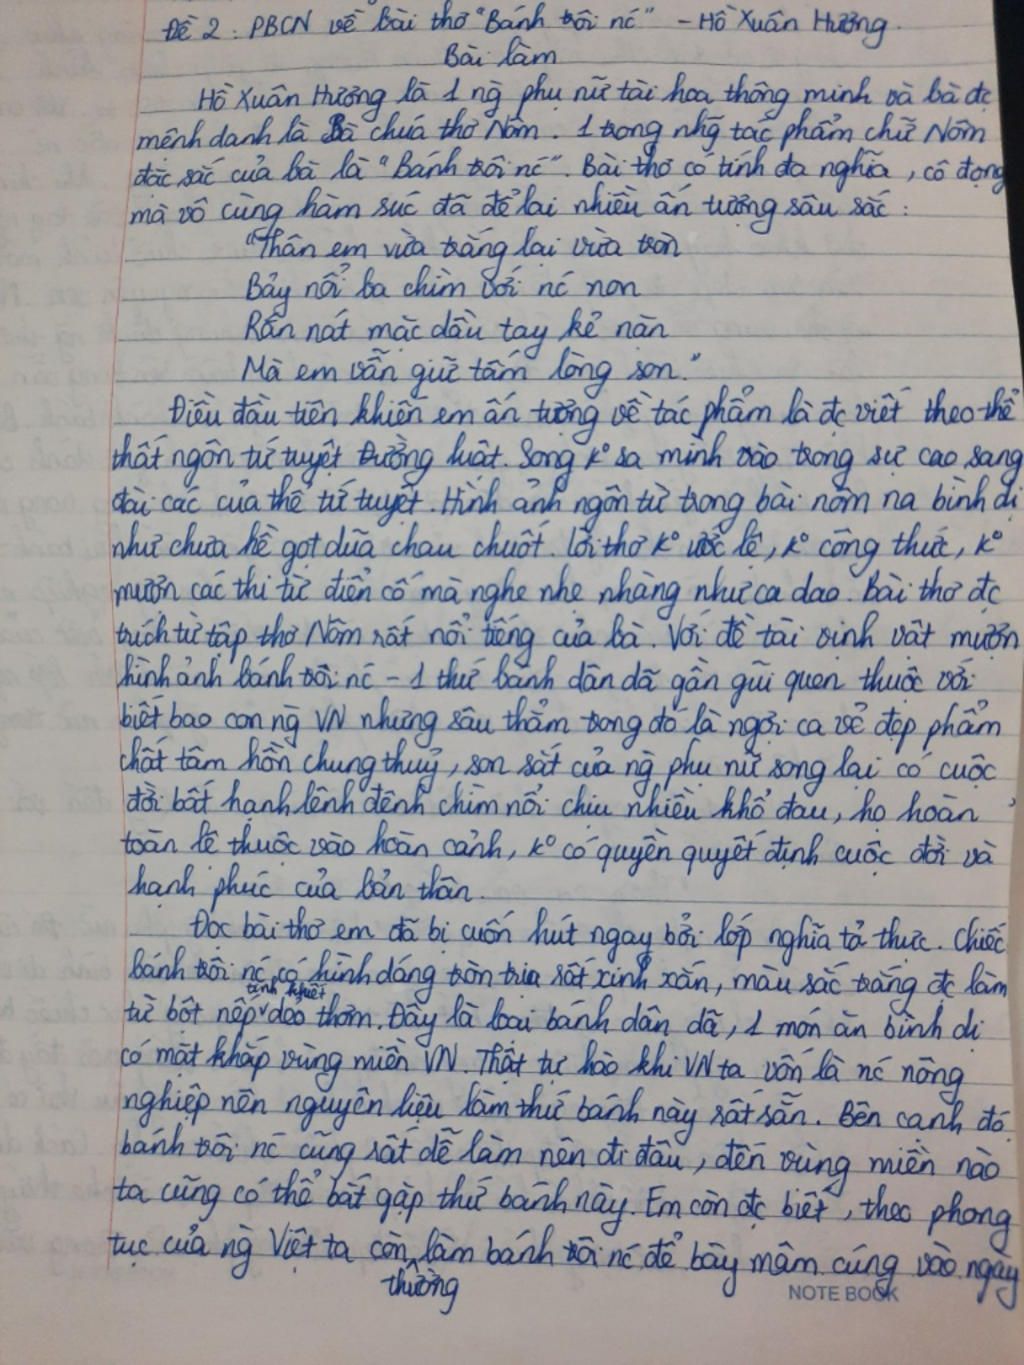 Đề 2: PBCN về bài thơ "Bánh trôi nc" - Hồ Xuân Hương.
Bài làm
Hồ Xuân Hương là 1 ng phụ nữ tài hoa thông minh và bà đc
mệnh danh là Bà chúa thơ Nôm. 1 trong nhg tác phẩm chữ Nôm
đặc sắc của bà là "Bánh trôi nc". Bài thơ có tính đa nghĩa, cô đọng
mà vô cùng hàm súc đã để lại nhiều ấn tượng sâu sắc:
"Thân em vừa trắng lại vừa tròn
Bảy nổi ba chìm với nc non
Rắn nát mặc dầu tay kẻ nặn
Mà em vẫn giữ tấm lòng son."
Điều đầu tiên khiến em ấn tượng về tác phẩm là đc viết theo thể
thất ngôn tứ tuyệt Đường luật. Song k° sa mình vào trong sự cao sang
đài các của thể tứ tuyệt. Hình ảnh ngôn từ trong bài nôm na bình dị
như chưa hề gọt dũa chau chuốt. Lời thơ k° ước lệ, k° công thức, k°
mượn các thi từ điển cố mà nghe nhẹ nhàng như ca dao. Bài thơ đc
trích từ tập thơ Nôm rất nổi tiếng của bà. Với đề tài vịnh vật mượn
hình ảnh bánh trôi nc - 1 thứ bánh dân dã gần gũi quen thuộc với
biết bao con ng VN nhưng sâu thẳm trong đó là ngợi ca vẻ đẹp phẩm
chất tâm hồn chung thuỷ, son sắt của ng phụ nữ song lại có cuộc
đời bất hạnh lênh đênh chìm nổi chịu nhiều khổ đau, họ hoàn
toàn lệ thuộc vào hoàn cảnh, k° có quyền quyết định cuộc đời và
hạnh phúc của bản thân.
Đọc bài thơ em đã bị cuốn hút ngay bởi lớp nghĩa tả thực. Chiếc
bánh trôi nc có hình dáng tròn trịa rất xinh xắn, màu sắc trắng đc làm
từ bột nếp tinh khiết dẻo thơm. Đây là loại bánh dân dã, 1 món ăn bình dị
có mặt khắp vùng miền VN. Thật tự hào khi VN ta vốn là nc nông
nghiệp nên nguyên liệu làm thứ bánh này rất sẵn. Bên cạnh đó
bánh trôi nc cũng rất dễ làm nên đi đâu, đến vùng miền nào
ta cũng có thể bắt gặp thứ bánh này. Em còn đc biết, theo phong
tục của ng Việt ta còn thường làm bánh trôi nc để bày mâm cúng vào ngày
NOTE BOOK